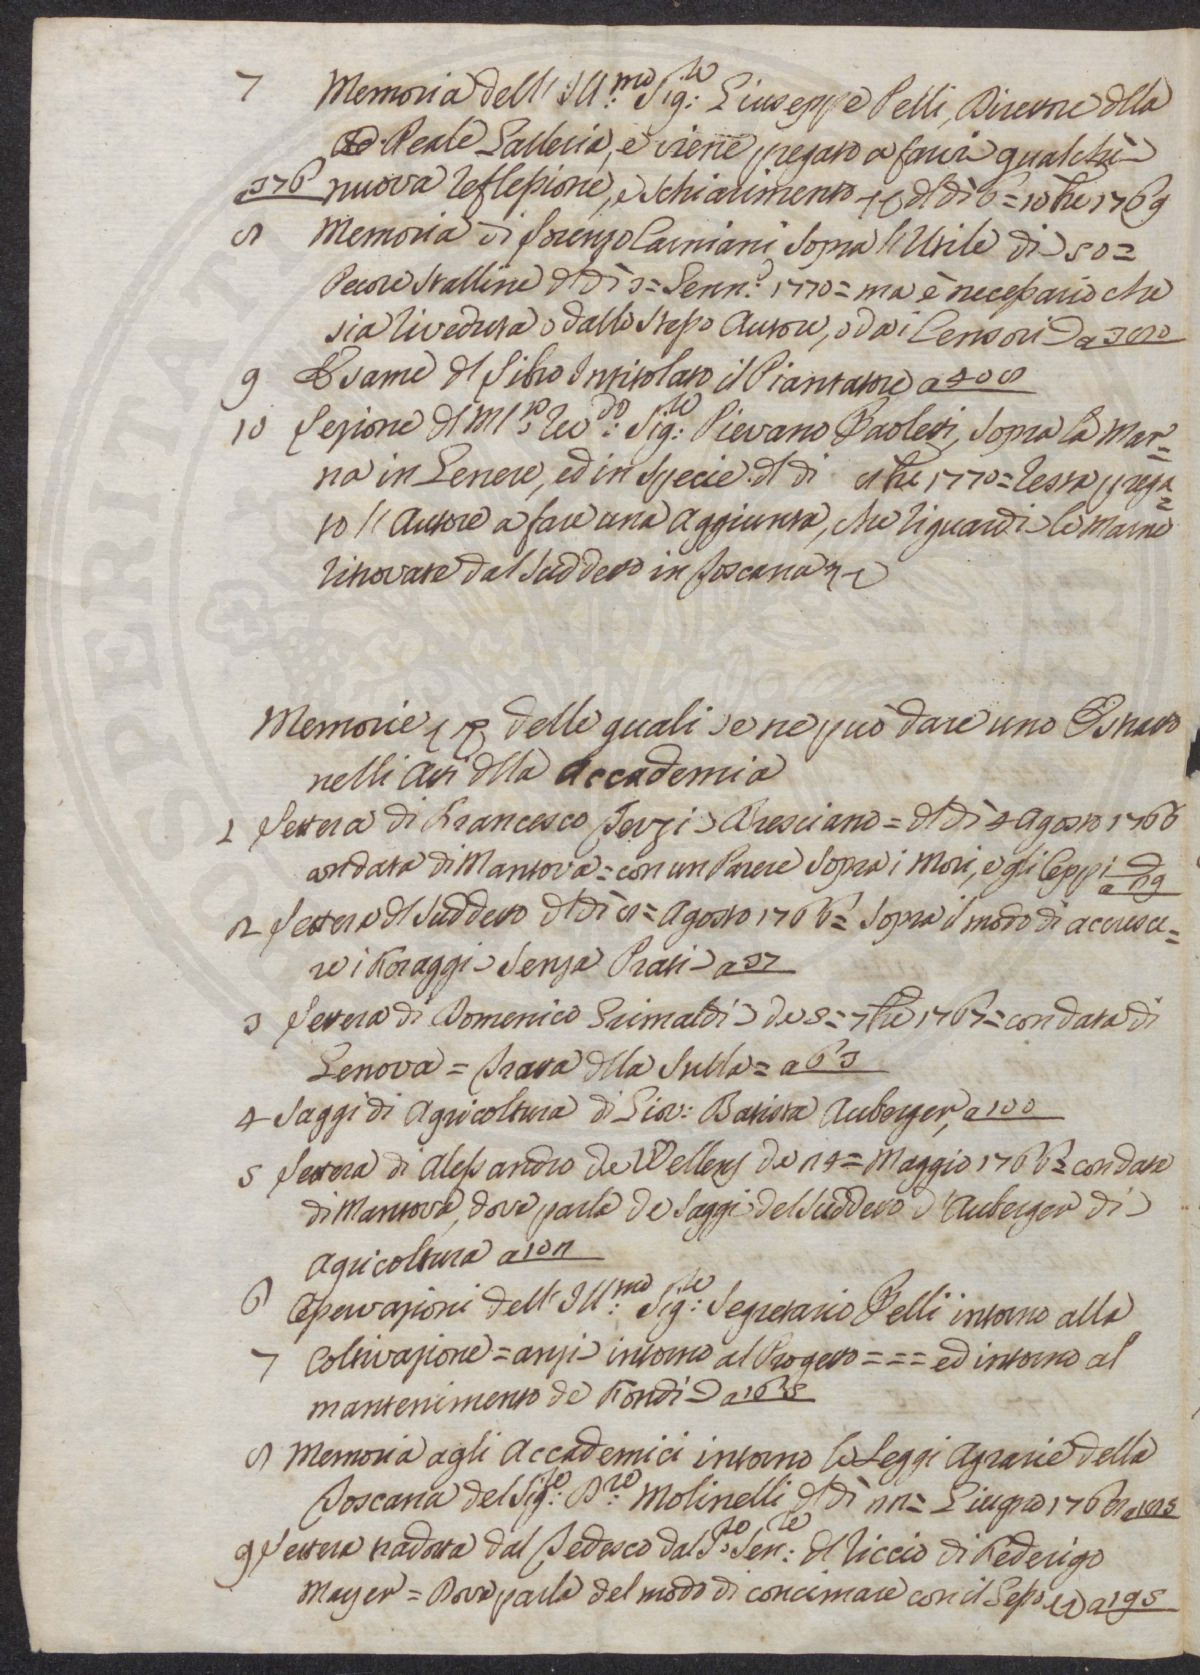 7 Memoria dell' Ill:mo Sig:re Giuseppe Pelli, Direttore dlla
Reale Galleria, e viene pregato a farvi qualche
a 376 nuova reflessione, e schiarimento dl dì 6 = 10bre 1769
8 Memoria di Lorenzo Carniani sopra l'Utile di 50 =
Pecore stalline dl dì 3 = Genn:o 1770 = ma è necessario che
sia riveduta o dallo stesso Autore, o dai Censori a 380
9 Esame dl Libro Intitolato il Piantatore a 408
10 Lezione dl M:to Rev:do Sig:re Pievano Paoletti, sopra la Mar=
na in Genere, ed in specie dl dì 8bre 1770 = resta prega=
to l'Autore a fare una Aggiunta, che riguardi le Marne
ritrovate dal suddetto in Toscana
Memorie delle quali se ne può dare uno Estratto
nelli Atti dlla Accademia
1 Lettera di Francesco Terzi Bresciano = dl dì 4 Agosto 1766
con data di Mantova = con un Parere sopra i Mori, e gli Ceppi a 29
2 Lettera dl suddetto dl dì 8 = Agosto 1766 = sopra il modo di accresce=
re i Foraggi senza Prati a 37
3 Lettera di Domenico Grimaldi de 5 = 7bre 1767 = con data di
Genova = Tratta dlla Sulla = a 63
4 Saggi di Agricoltura di Giov: Batista Auberger, a 100
5 Lettera di Alessandro de Wellens de 24 = Maggio 1766 = con data
di Mantova, dove parla de Saggi del suddetto d'Auberger di
Agricoltura a 102
6 Osservazioni dell' Ill:mo Sig:re Segretario Pelli intorno alla
7 Coltivazione = anzi intorno al Progetto = = = ed intorno al
mantenimento de Fondi a 165
8 Memoria agli Accademici intorno le Leggi Agrarie della
Toscana del Sig:re D:re Molinelli dl dì 22 = Giugno 1768 a 185
9 Lettera tradotta dal Tedesco dal Sen:re dl Riccio di Federigo
Mayer = Dove parla del modo di concimare con il Gesso a 195